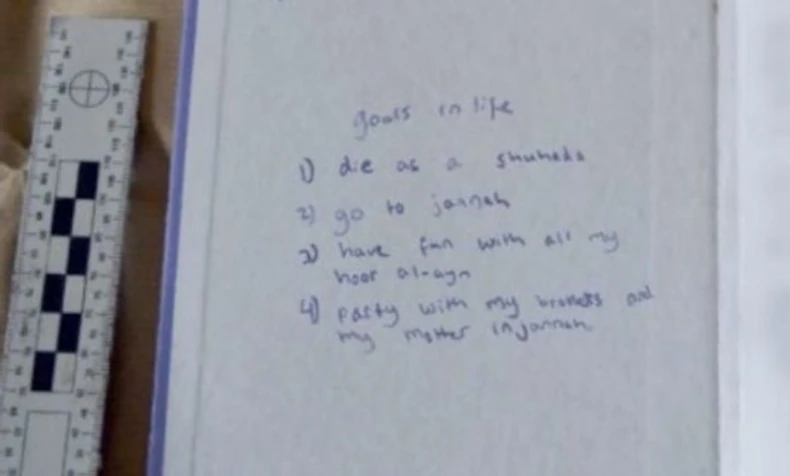 goals in life
1) die as a shuhada
2) go to jannah
3) have fun with all my
hoor al-ayn
4) party with my brothers and
my mother in jannah